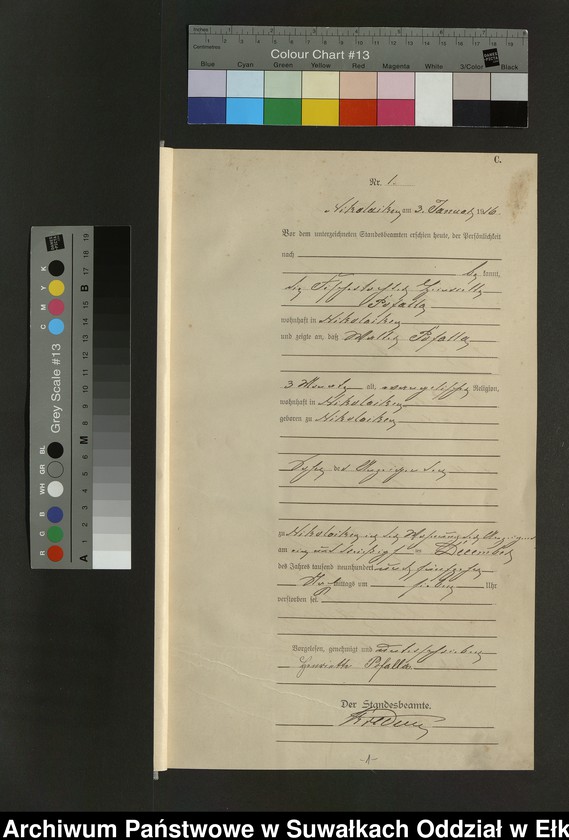 Inches
Centimetres
Colour Chart #13
Blue Cyan Green Yellow Red Magenta White 3/Color Black
Grey Scale #13
C M Y K
R G B WH GR BL
A 1 2 3 4 5 6 M 8 9 10 11 12 13 14 15 B 17 18 19
C.
Nr. 1.
Nikolaiken am 3. Januar 1916.
Vor dem unterzeichneten Standesbeamten erschien heute, der Persönlichkeit
nach
be kannt,
Henriette
Pofalla
wohnhaft in Nikolaiken
und zeigte an, daß Walter Pofalla
3 Monate alt, evangelischer Religion,
wohnhaft in Nikolaiken
geboren zu Nikolaiken
Sohn der Anzeigenden
zu Nikolaiken in der Wohnung der
am ein und dreißigsten December
des Jahres tausend neunhundert und fünfzehn
mittags um sieben Uhr
verstorben sei.
Vorgelesen, genehmigt und unterschrieben
Henriette Pofalla
Der Standesbeamte.
-1-
Archiwum Państwowe w Suwałkach Oddział w Ełk